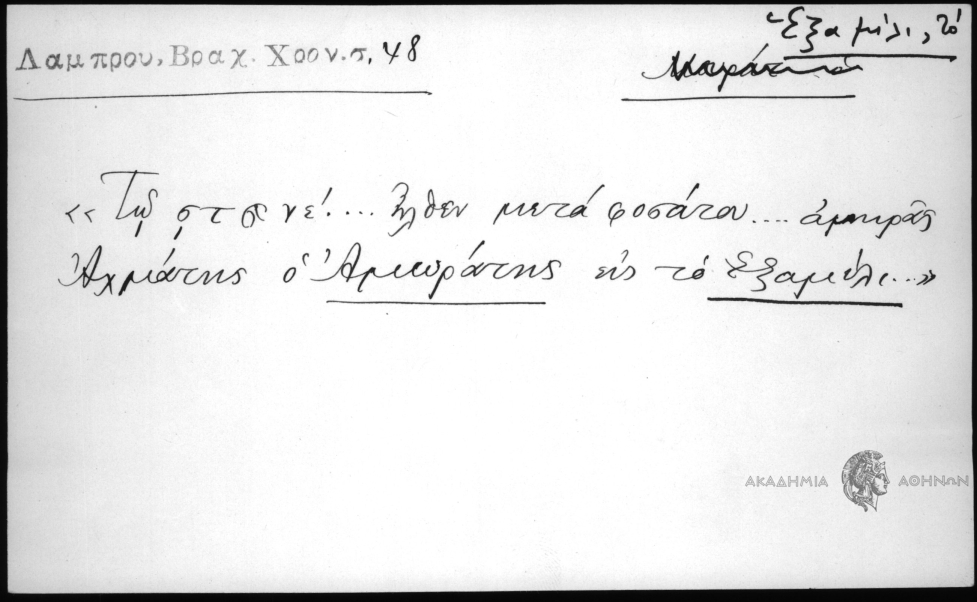 Λαμπρου, Βραχ. Χρον. σ. 48
Ἑξαμίλι, τό
« Τῷ ͵ϛ ϡ ν ε΄. ... ἦλθεν μετά φοσάτου .... ἀμηρᾶς
Ἀχμάτης ὁ Ἀμουράτης εἰς τό Ἑξαμίλι... »
ΑΚΑΔΗΜΙΑ ΑΘΗΝΩΝ